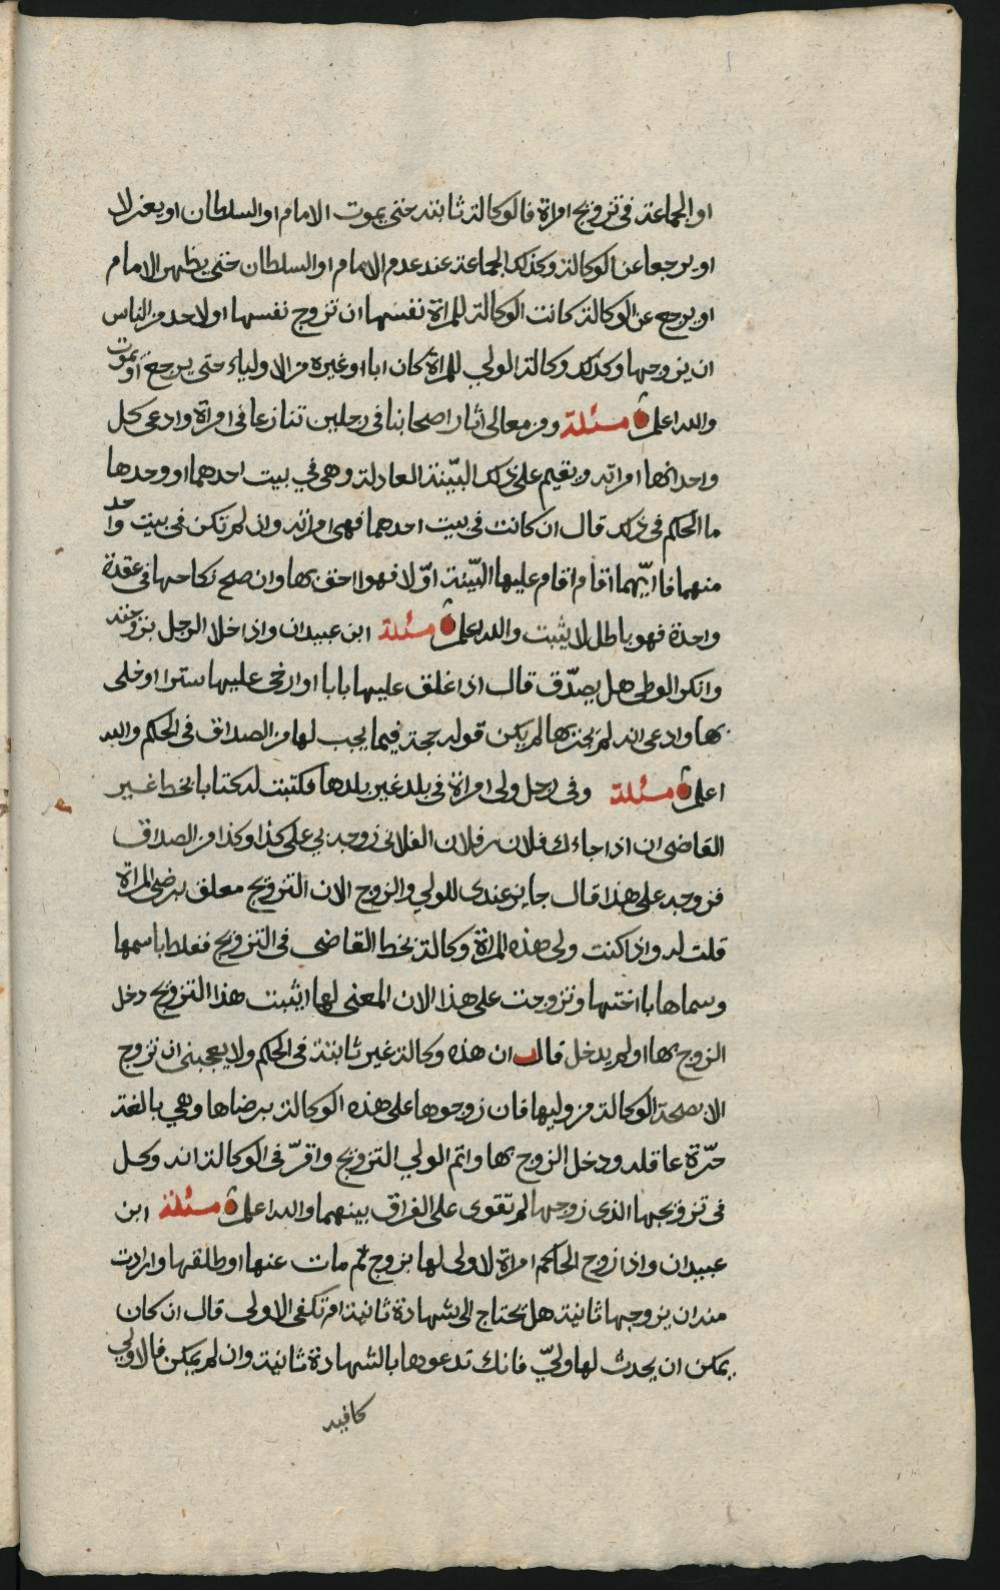 او الجماعة في تزويج امراة فالوكالة ثابتة حتى يموت الامام او السلطان او يعزلا
او يرجعا عن الوكالة وكذلك الجماعة عند عدم الامام او السلطان حتى يظهر الامام
او يرجع عن الوكالة كانت الوكالة للمراة نفسها ان تزوج نفسها او لاحد من الناس
ان يزوجها وكذلك وكالة الولي للمراة كان ابا او غيره من الاولياء حتى يرجع او يموت
والله اعلم مسئلة ومن معالي اثار اصحابنا في رجلين تنازعا في امراة وادعى كل
واحد انها امراته ويقيم على ذلك البيّنة العادلة وهي في بيت احدهما او وحدها
ما الحكم في ذلك قال ان كانت في بيت احدهما فهي امراته وان لم تكن في بيت واحد
منهما فا ايّهما اقام اقام عليها البيّنة اوّلا فهو احق بها وان صلح نكاحها في عقدة
واحدة فهو باطل لا يثبت والله اعلم مسئلة ابن عبيدان واذا خلا الرجل بزوجته
وانكر الوطي هل يصدّق قال اذا غلق عليها بابا او ارخى عليها سترا او خلى
بها وادعى انه لم يجز بها لم يكن قوله حجة فيما يجب لها من الصداق في الحكم والله
اعلم مسئلة وفي رجل ولي امراة في بلد غير بلدها فكتبت له كتابا بخط غير
القاضي ان اذا جاءك فلان بن فلان الفلاني زوجه بي على كذا وكذا من الصداق
فزوجه على هذا قال جايز عندي للولي والزوج الان التزويج معلق برضى المراة
قلت له واذا كنت ولي هذه المراة وكالة بخط القاضي في التزويج فغلط باسمها
وسماها با اختها وتزوجت على هذا الان المعنى لها ايثبت هذا التزويج دخل
الزوج بها او لم يدخل قال ان هذه وكالة غير ثابتة في الحكم ولا يعجبني ان تزوج
الا بصحة الوكالة من وليها فان زوجوها على هذه الوكالة برضاها وهي بالغة
حرّة عاقله ودخل الزوج بها واتم الولي التزويج واقرّ في الوكالة انه وكل
في تزويجها الذي زوجها لم تقوى على الفراق بينهما والله اعلم مسئلة ابن
عبيدان واذا زوج الحاكم امراة لا ولي لها بزوج ثم مات عنها او طلقها وارادت
منه ان يزوجها ثانية هل تحتاج الى شهادة ثانية ام تكفي الاولى قال ان كان
يمكن ان يحدث لها وليّ فانك تدعوها بالشهادة ثانية وان لم يمكن فالاولى
كافيه